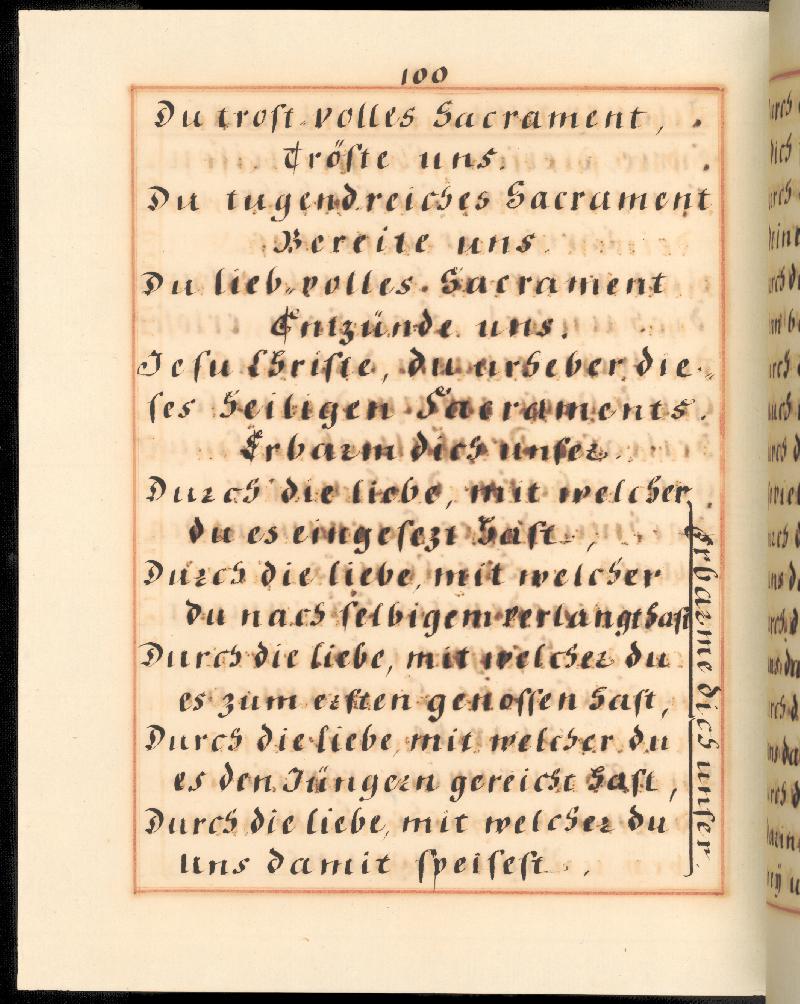 100
Du trost-volles Sacrament,
Tröste uns.
Du tugendreiches Sacrament
Bereite uns.
Du lieb-volles Sacrament
Entzünde uns.
Jesu Christe, du urheber die-
ses heiligen Sacraments.
Erbarm dich unser.
Durch die liebe, mit welcher
du es eingesezt hast,
Durch die liebe, mit welcher
du nach selbigem verlangt hast
Durch die liebe, mit welcher du
es zum ersten genossen hast,
Durch die liebe, mit welcher du
es den Jüngern gereicht hast,
Durch die liebe, mit welcher du
uns damit speisest,
Erbarme dich unser.